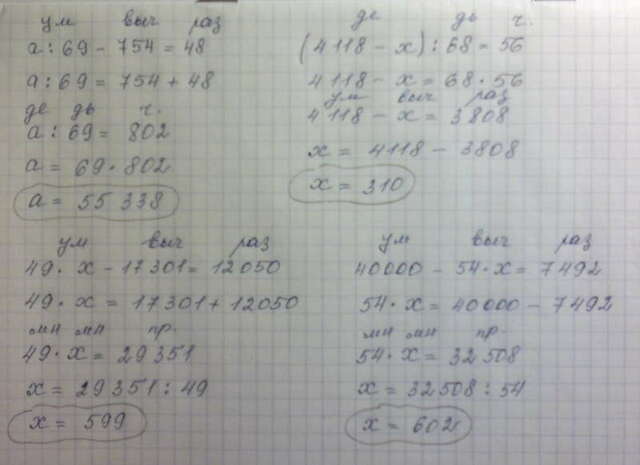 ум выч раз
a : 69 - 754 = 48
a : 69 = 754 + 48
де дь ч.
a : 69 = 802
a = 69 · 802
a = 55 338
де дь ч.
(4118 - x) : 68 = 56
4118 - x = 68 · 56
ум выч раз
4118 - x = 3808
x = 4118 - 3808
x = 310
ум выч раз
49 · x - 17301 = 12050
49 · x = 17301 + 12050
мн мн пр.
49 · x = 29351
x = 29351 : 49
x = 599
ум выч раз
40000 - 54 · x = 7492
54 · x = 40000 - 7492
мн мн пр.
54 · x = 32508
x = 32508 : 54
x = 602